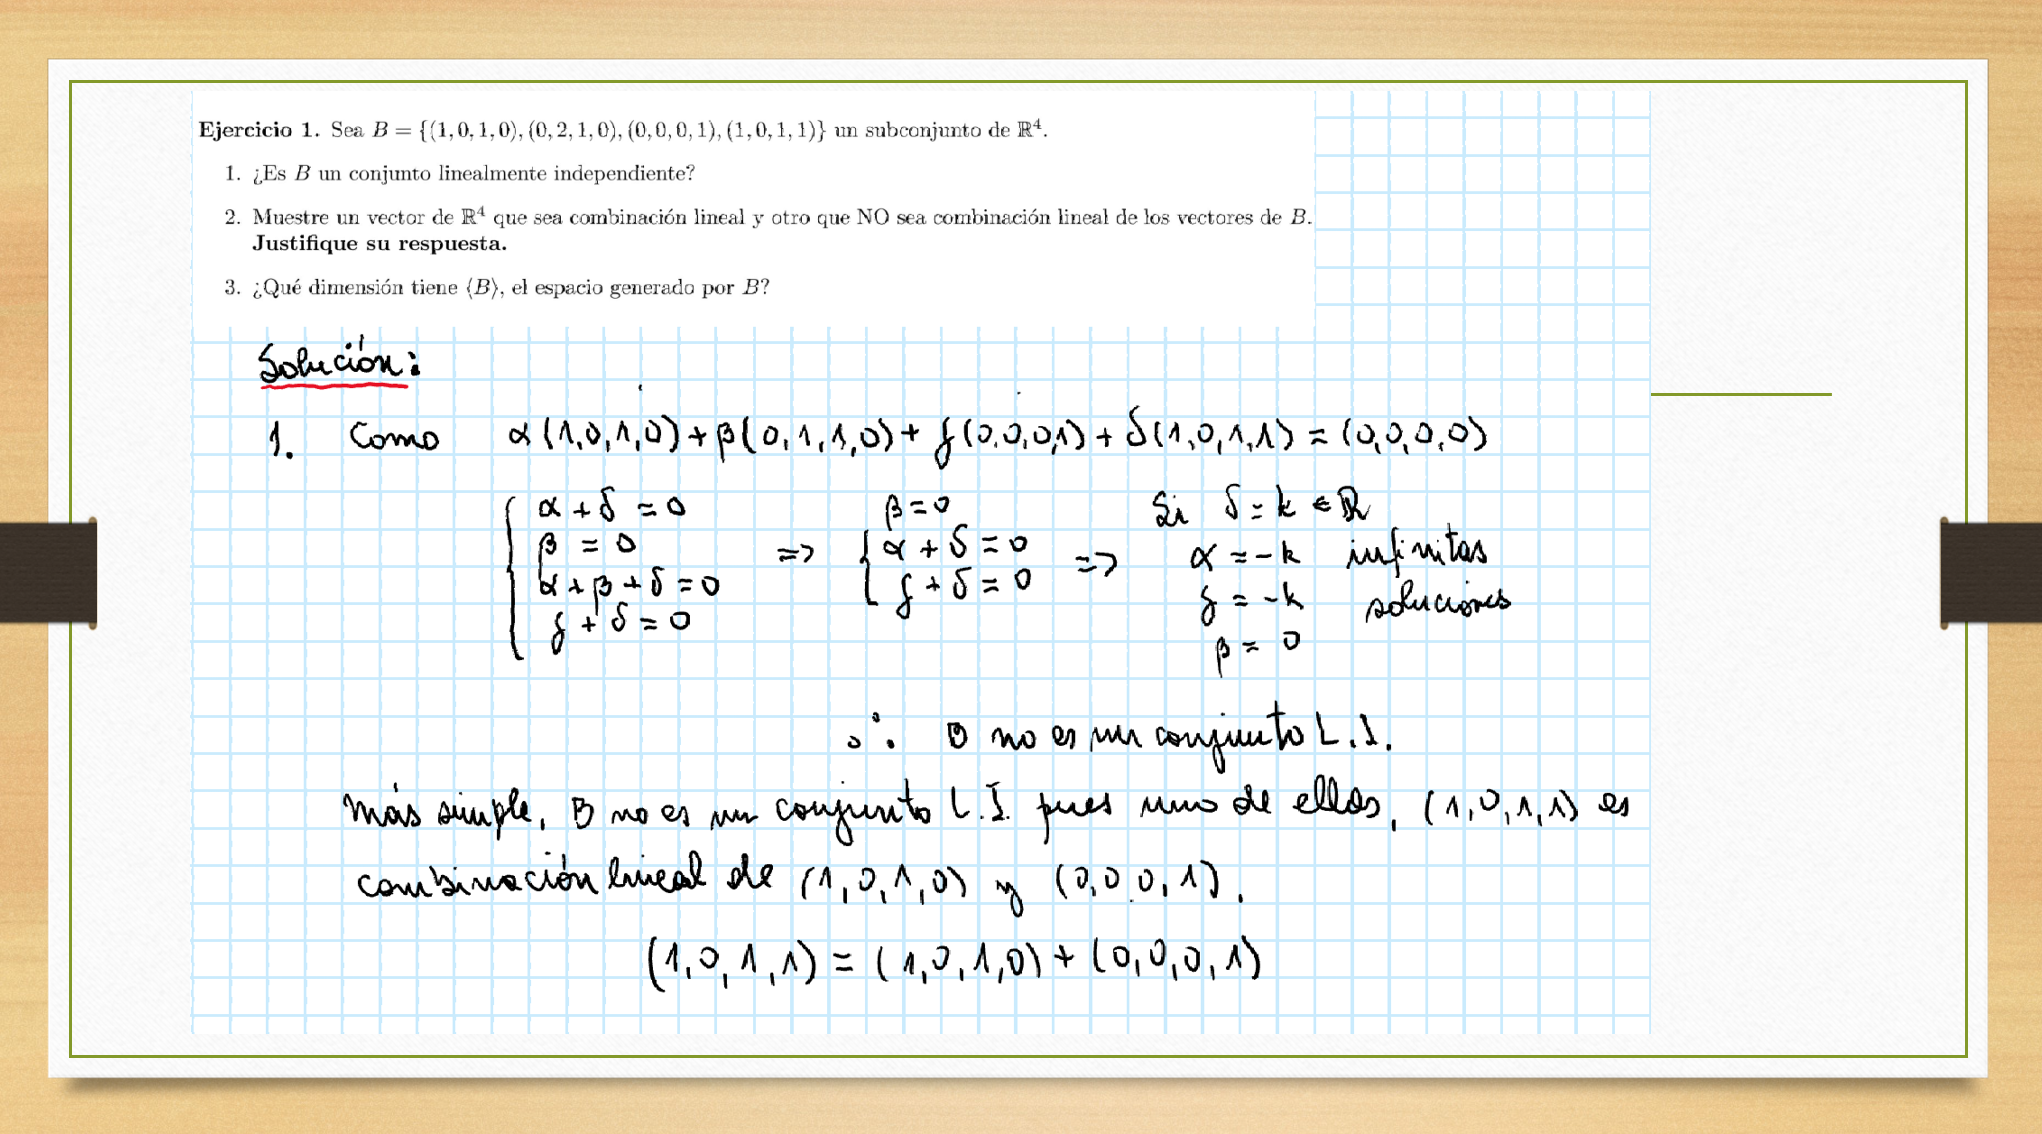 Ejercicio 1. Sea B = {(1, 0, 1, 0), (0, 2, 1, 0), (0, 0, 0, 1), (1, 0, 1, 1)} un subconjunto de ℝ⁴.
1. ¿Es B un conjunto linealmente independiente?
2. Muestre un vector de ℝ⁴ que sea combinación lineal y otro que NO sea combinación lineal de los vectores de B.
Justifique su respuesta.
3. ¿Qué dimensión tiene ⟨B⟩, el espacio generado por B?
Solución:
1. Como α(1,0,1,0) + β(0,1,1,0) + γ(0,0,0,1) + δ(1,0,1,1) = (0,0,0,0)
α + δ = 0 β = 0 Si δ = k ∈ ℝ
β = 0 => α + δ = 0 => α = -k infinitas
α + β + δ = 0 γ + δ = 0 γ = -k soluciones
γ + δ = 0 β = 0
∴ B no es un conjunto L.I.
más simple, B no es un conjunto L.I. pues uno de ellos, (1,0,1,1) es
combinación lineal de (1,0,1,0) y (0,0,0,1).
(1,0,1,1) = (1,0,1,0) + (0,0,0,1)